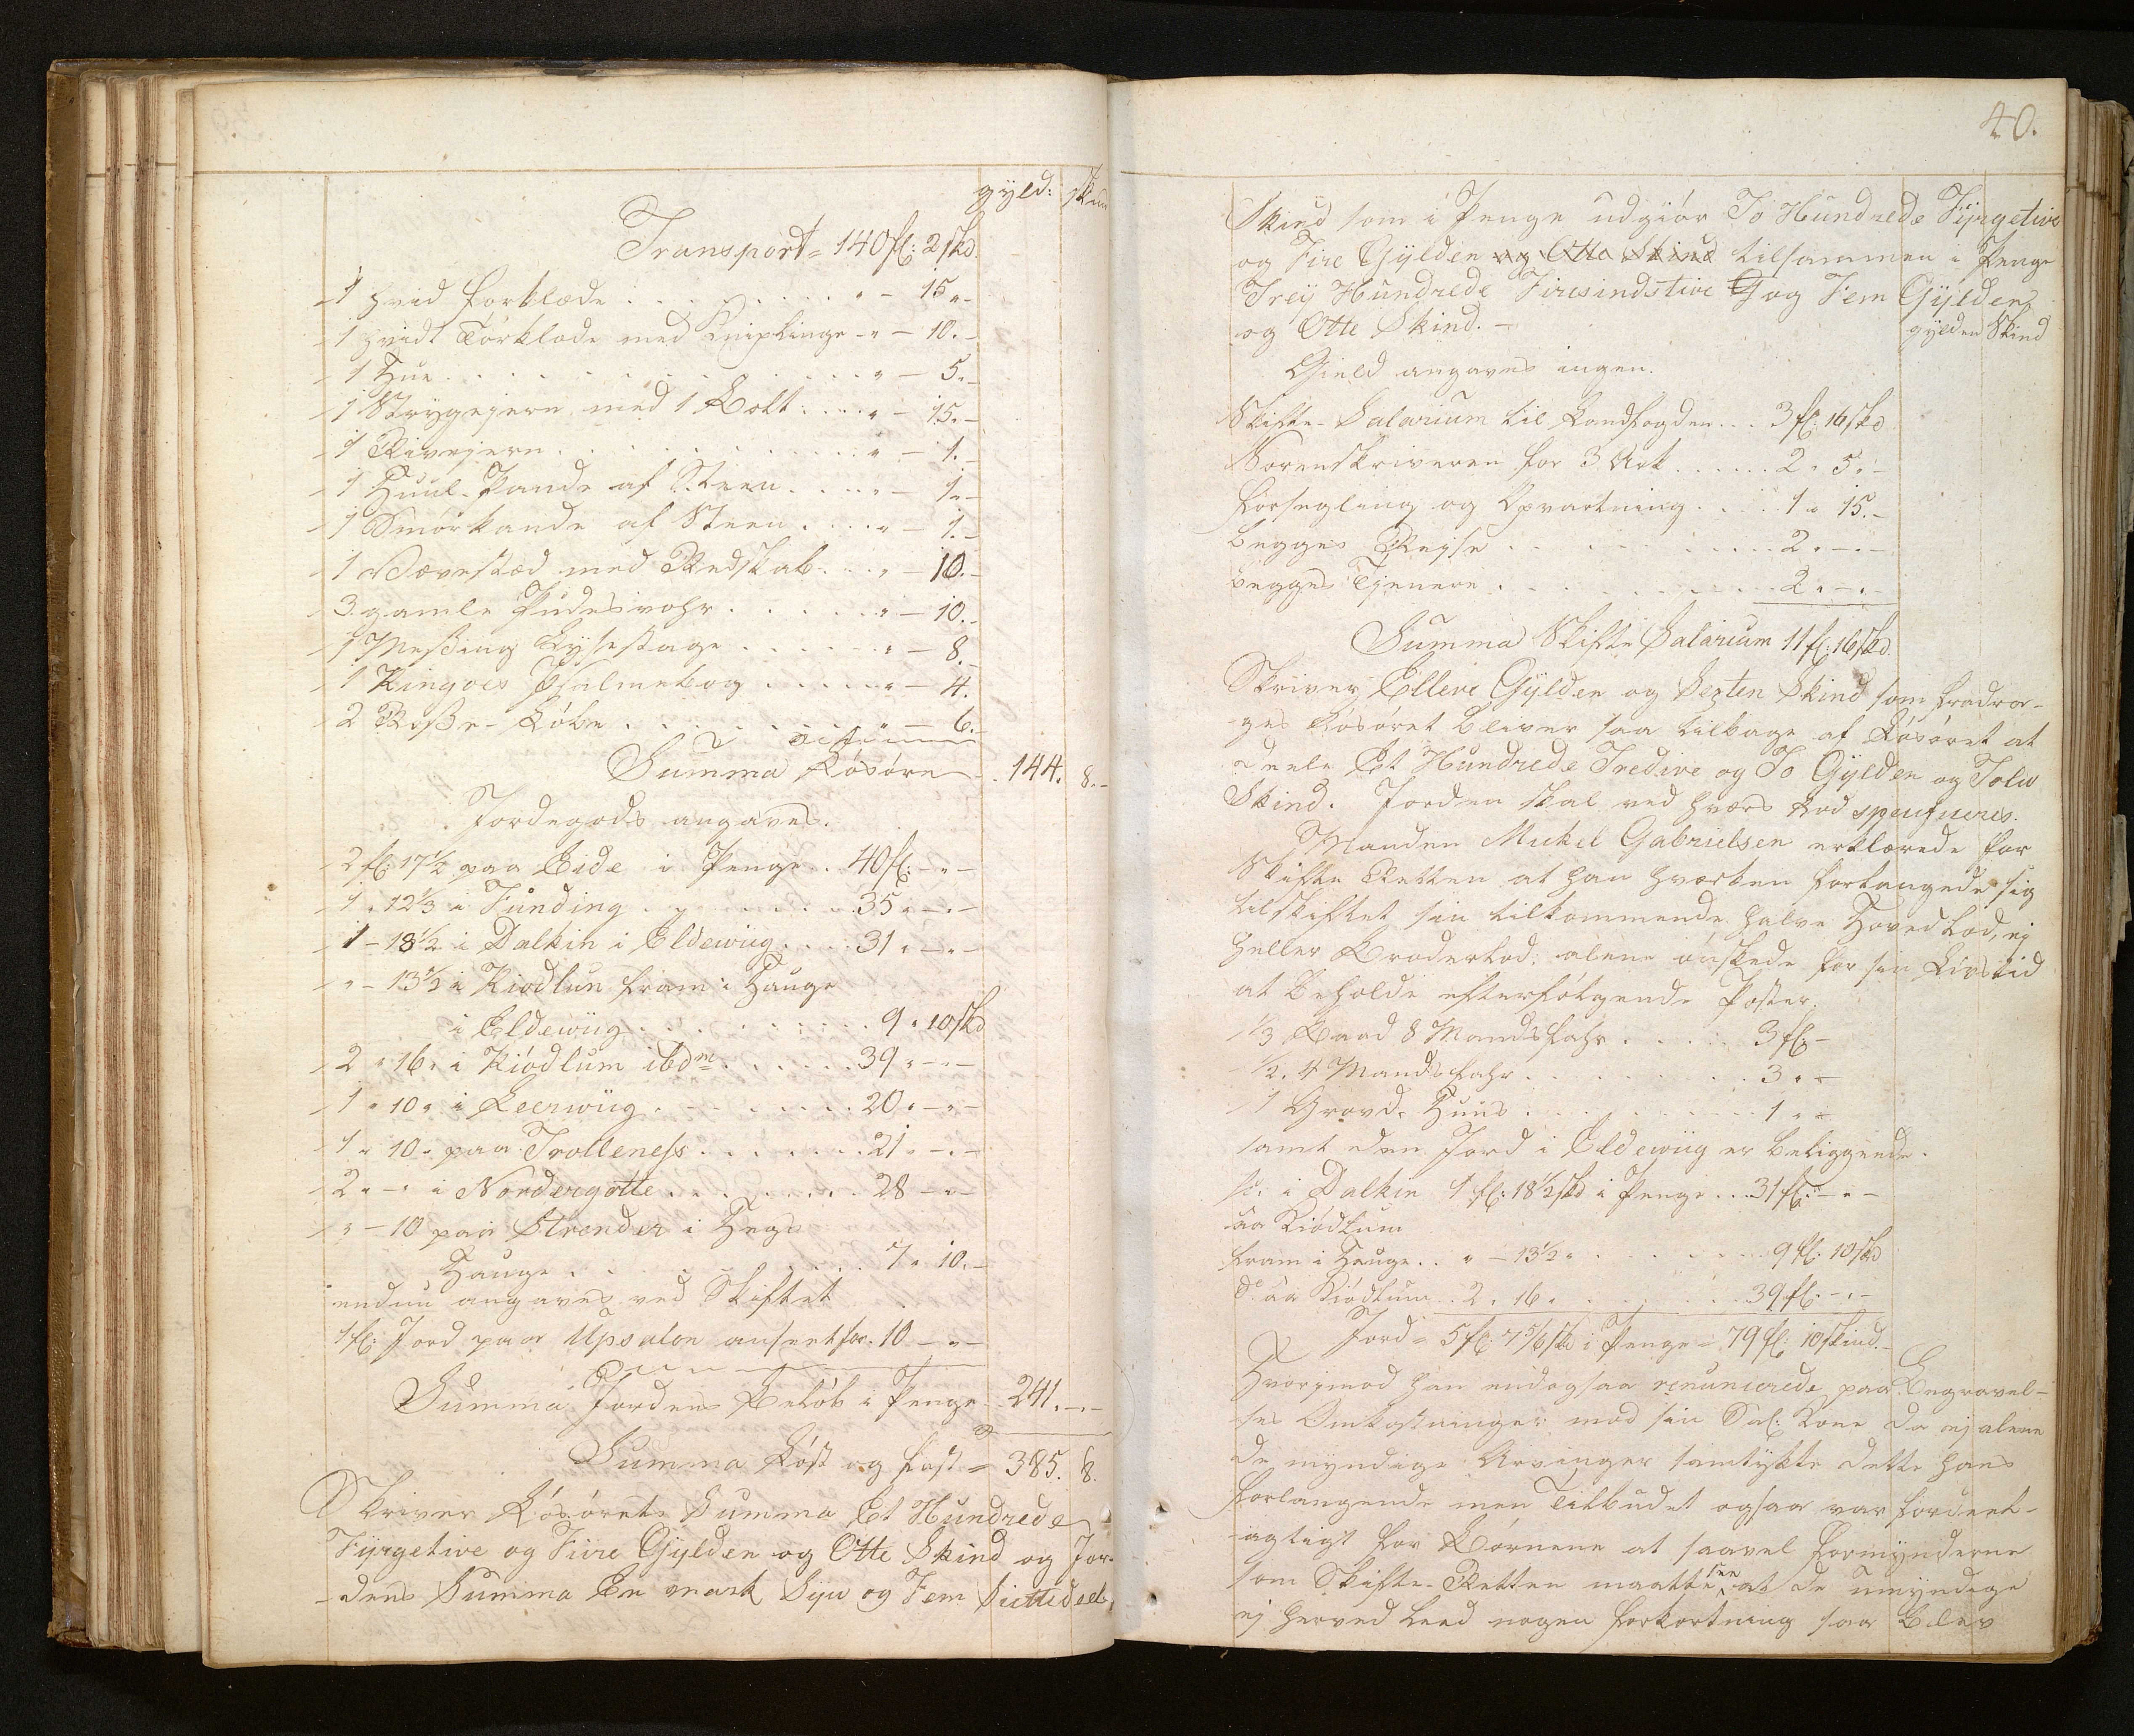 gyld: skind
Transport = 140 fl: 2 skd
1 hvid Forklæde . . . . . . . . " - 15 " -
1 hvidt Törklæde med Kniplinger - " - 10. -
1 Hue . . . . . . . . . . " - 5 " -
1 Strygejern med 1 Bolt . . . " - 15. -
1 Rivejern . . . . . . . . . " - 1. -
1 Huul-Pande af Steen . . . . " - 1. -
1 Smörkande af Steen . . . . " - 1. -
1 Vævestæd med Redskab . . . " - 10. -
3 gamle Pudesvohr . . . . . " - 10. -
1 Messing Lysestage . . . . . " - 8. -
1 Kingoes Psalmebog . . . . . " - 4.
2 Rosse-Löbe . . . . . . . " - 6. -
Summa Lösöre - 144. 8. -
Jordegods angaves.
2 fl: 17½ paa Eide i Penge . 40 fl: - " -
1 " 12⅓ i Funding . . . . . . 35 " - " -
1 - 18½ i Dalkin i Eldewiig . . . . 31 " - " -
" - 13½ i Kiodlun fram i Hauge
i Eldewiig . . . . . . . . . 9 " 10 skd
2 " 16 " i Kiödlum ibdm . . . . . 39 " - " -
1 " 10 " i Leerwiig . . . . . . 20 " - " -
1 " 10 " paa Trolleness . . . . . . 21 " - " -
2 " - " i Nordregötte . . . . . . . 28 - " -
" - 10 paa Strender i Hegn
Hauge . . . . . . . . . . 7 " 10. -
endnu angaves ved Skiftet
1 fl: Jord paa Upsalon anseet for 10 - " -
Summa Jordens Belöb i Penge - 241. - " -
Summa Löst og fast = 385. 8.
Skriver Lösörets Summa Et Hundrede
Fyrgetive og Fiire Gylden og Otte Skind og Jor-
-dens Summa En mark Syw og Fem Siettedeel
40.
Skind som i Penge udgiör To Hundrede Fyrgetive
og Fire Gylden og Otte Skind tilsammen i Penge
Trey Hundrede Firesindstive G og Fem Gylden
og Otte Skind. -
gylden Skind
Gield angaves ingen.
Skifte-Salarium til Landfogden . . . 3 fl: 16 skd
Sorenskriveren for 3 Ark . . . . . . 2 " 5 " -
Forsegling og Opvartning . . . . 1 " 15. -
begges Rejse . . . . . . . . . . 2 " - " -
begges Tjenere . . . . . . . . . 2 " - " -
Summa Skifte Salarium 11 fl: 16 skd
Skriver Elleve Gylden og Sexten Skind som fradra-
-ges Lösöret bliver saa tilbage af Lösöret at
deele Et Hundrede Tredive og To Gylden og Tolw
Skind. Jorden skal ved hvers Lod specificeres.
Manden Michel Gabrielsen erklærede for
Skifte Retten at han hværken forlangede sig
tilskiftet sin tilkommende halve Hovedlod, ej
heller Broderlod, alene önskede for sin Livstid
at beholde efterfölgende Poster.
⅓ Baad 8 Mandsfahr . . . . . 3 fl: -
½ . 4 Mandsfahr . . . . . . . . 3 " -
1 Grovd. Huus . . . . . . . . . 1 " -
samt den Jord i Eldewiig er beliggende.
sc. i Dalkin 1 fl: 18½ skd i Penge . . . 31 fl: - " -
aa Kiödlum
fram i Hauge . . " - 13½ " . . . . . . . . 9 fl: 10 skd
do. aa Kiödlum . . 2 " 16 " . . . . . . . 39 fl: - " -
Jord = 5 fl: 7 5/6 skd i Penge = 79 fl: 10 skind. -
Hvorimod han endogsaa renuncierede paa Begravel-
-ses Omkostninger mod sin Sal: Kone da ej alene
de myndige Arvinger samtykte dette hans
forlangende men Tilbudet ogsaa var fordeel-
-agtigt for Börnene at saavel Formynderne
som Skifte-Retten maatte see at de umyndige
ej herved leed nogen forkortning saa blev